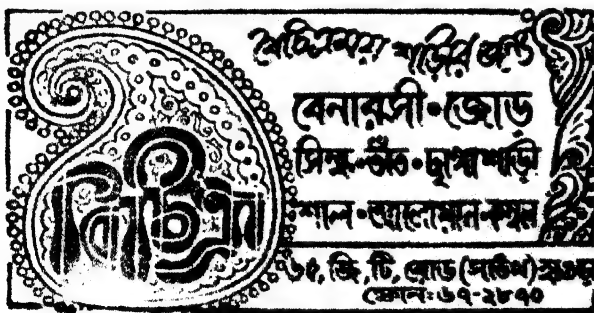 বিচিত্রা
বৈচিত্রময় শাড়ির জন্য
বেনারসী • জোড়
সিল্ক • তাঁত • ছাপাশাড়ী
শাল • আলোয়ান • কম্বল
৬৫, জি, টি, রোড (সাউথ) হাওড়া
ফোন: ৬৭-২৮৭০